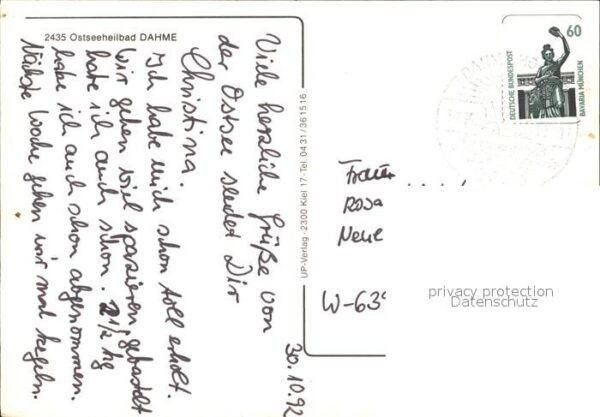 2435 Ostseeheilbad DAHME
Viele herzliche Grüße von
der Ostsee sendet Dir
Christina.
Ich habe mich schon toll erholt.
Wir gehen viel spazieren, gebastelt
habe ich auch schon. 2 1/2 kg
habe ich auch schon abgenommen.
Nächste Woche gehen wir mal kegeln.
30.10.92
UP-Verlag · 2300 Kiel 17 · Tel. 04 31 / 36 15 16
60
DEUTSCHE BUNDESPOST
BAVARIA MÜNCHEN
DAHME, HO
Frau
Rosa
Neue
W-639
privacy protection
Datenschutz